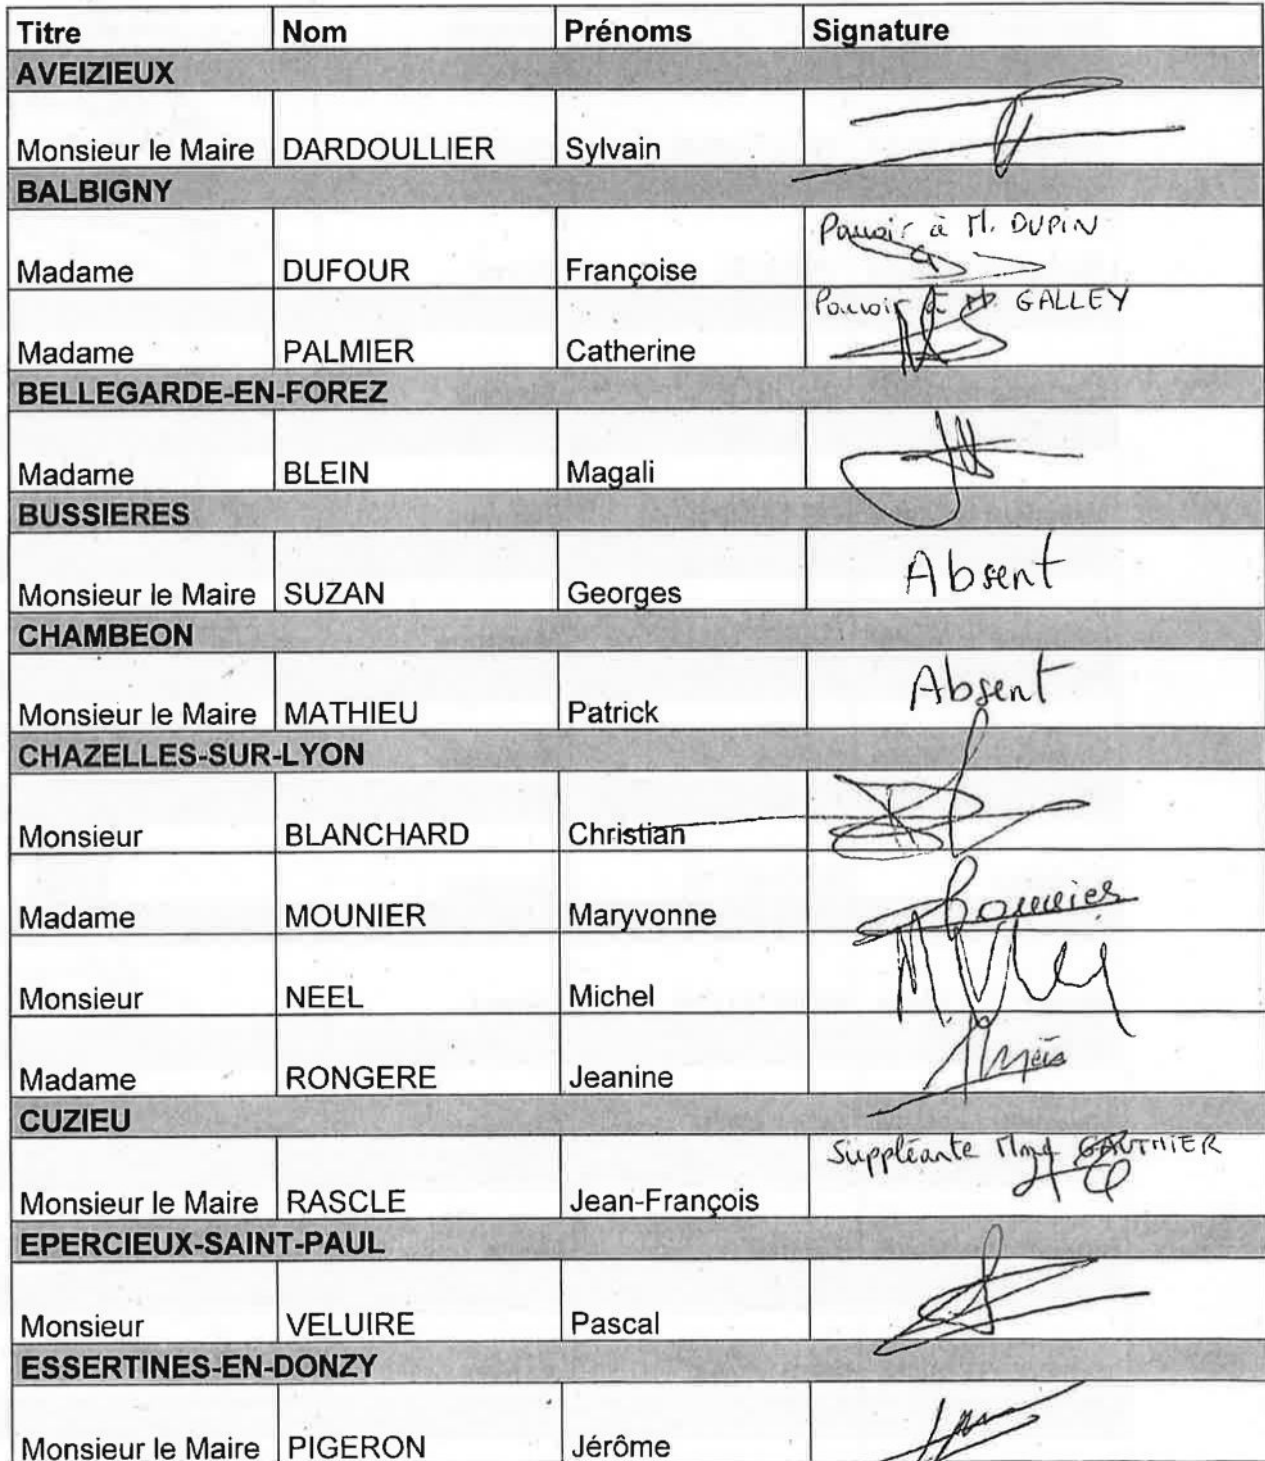 Titre Nom Prénoms Signature
AVEIZIEUX
Monsieur le Maire DARDOULLIER Sylvain
BALBIGNY
Pouvoir à M. DUPIN
Madame DUFOUR Françoise
Pouvoir à M. GALLEY
Madame PALMIER Catherine
BELLEGARDE-EN-FOREZ
Madame BLEIN Magali
BUSSIERES
Monsieur le Maire SUZAN Georges Absent
CHAMBEON
Monsieur le Maire MATHIEU Patrick Absent
CHAZELLES-SUR-LYON
Monsieur BLANCHARD Christian
Madame MOUNIER Maryvonne Mounier
Monsieur NEEL Michel
Madame RONGERE Jeanine
CUZIEU
Suppléante Mme GAUTHIER
Monsieur le Maire RASCLE Jean-François
EPERCIEUX-SAINT-PAUL
Monsieur VELUIRE Pascal
ESSERTINES-EN-DONZY
Monsieur le Maire PIGERON Jérôme